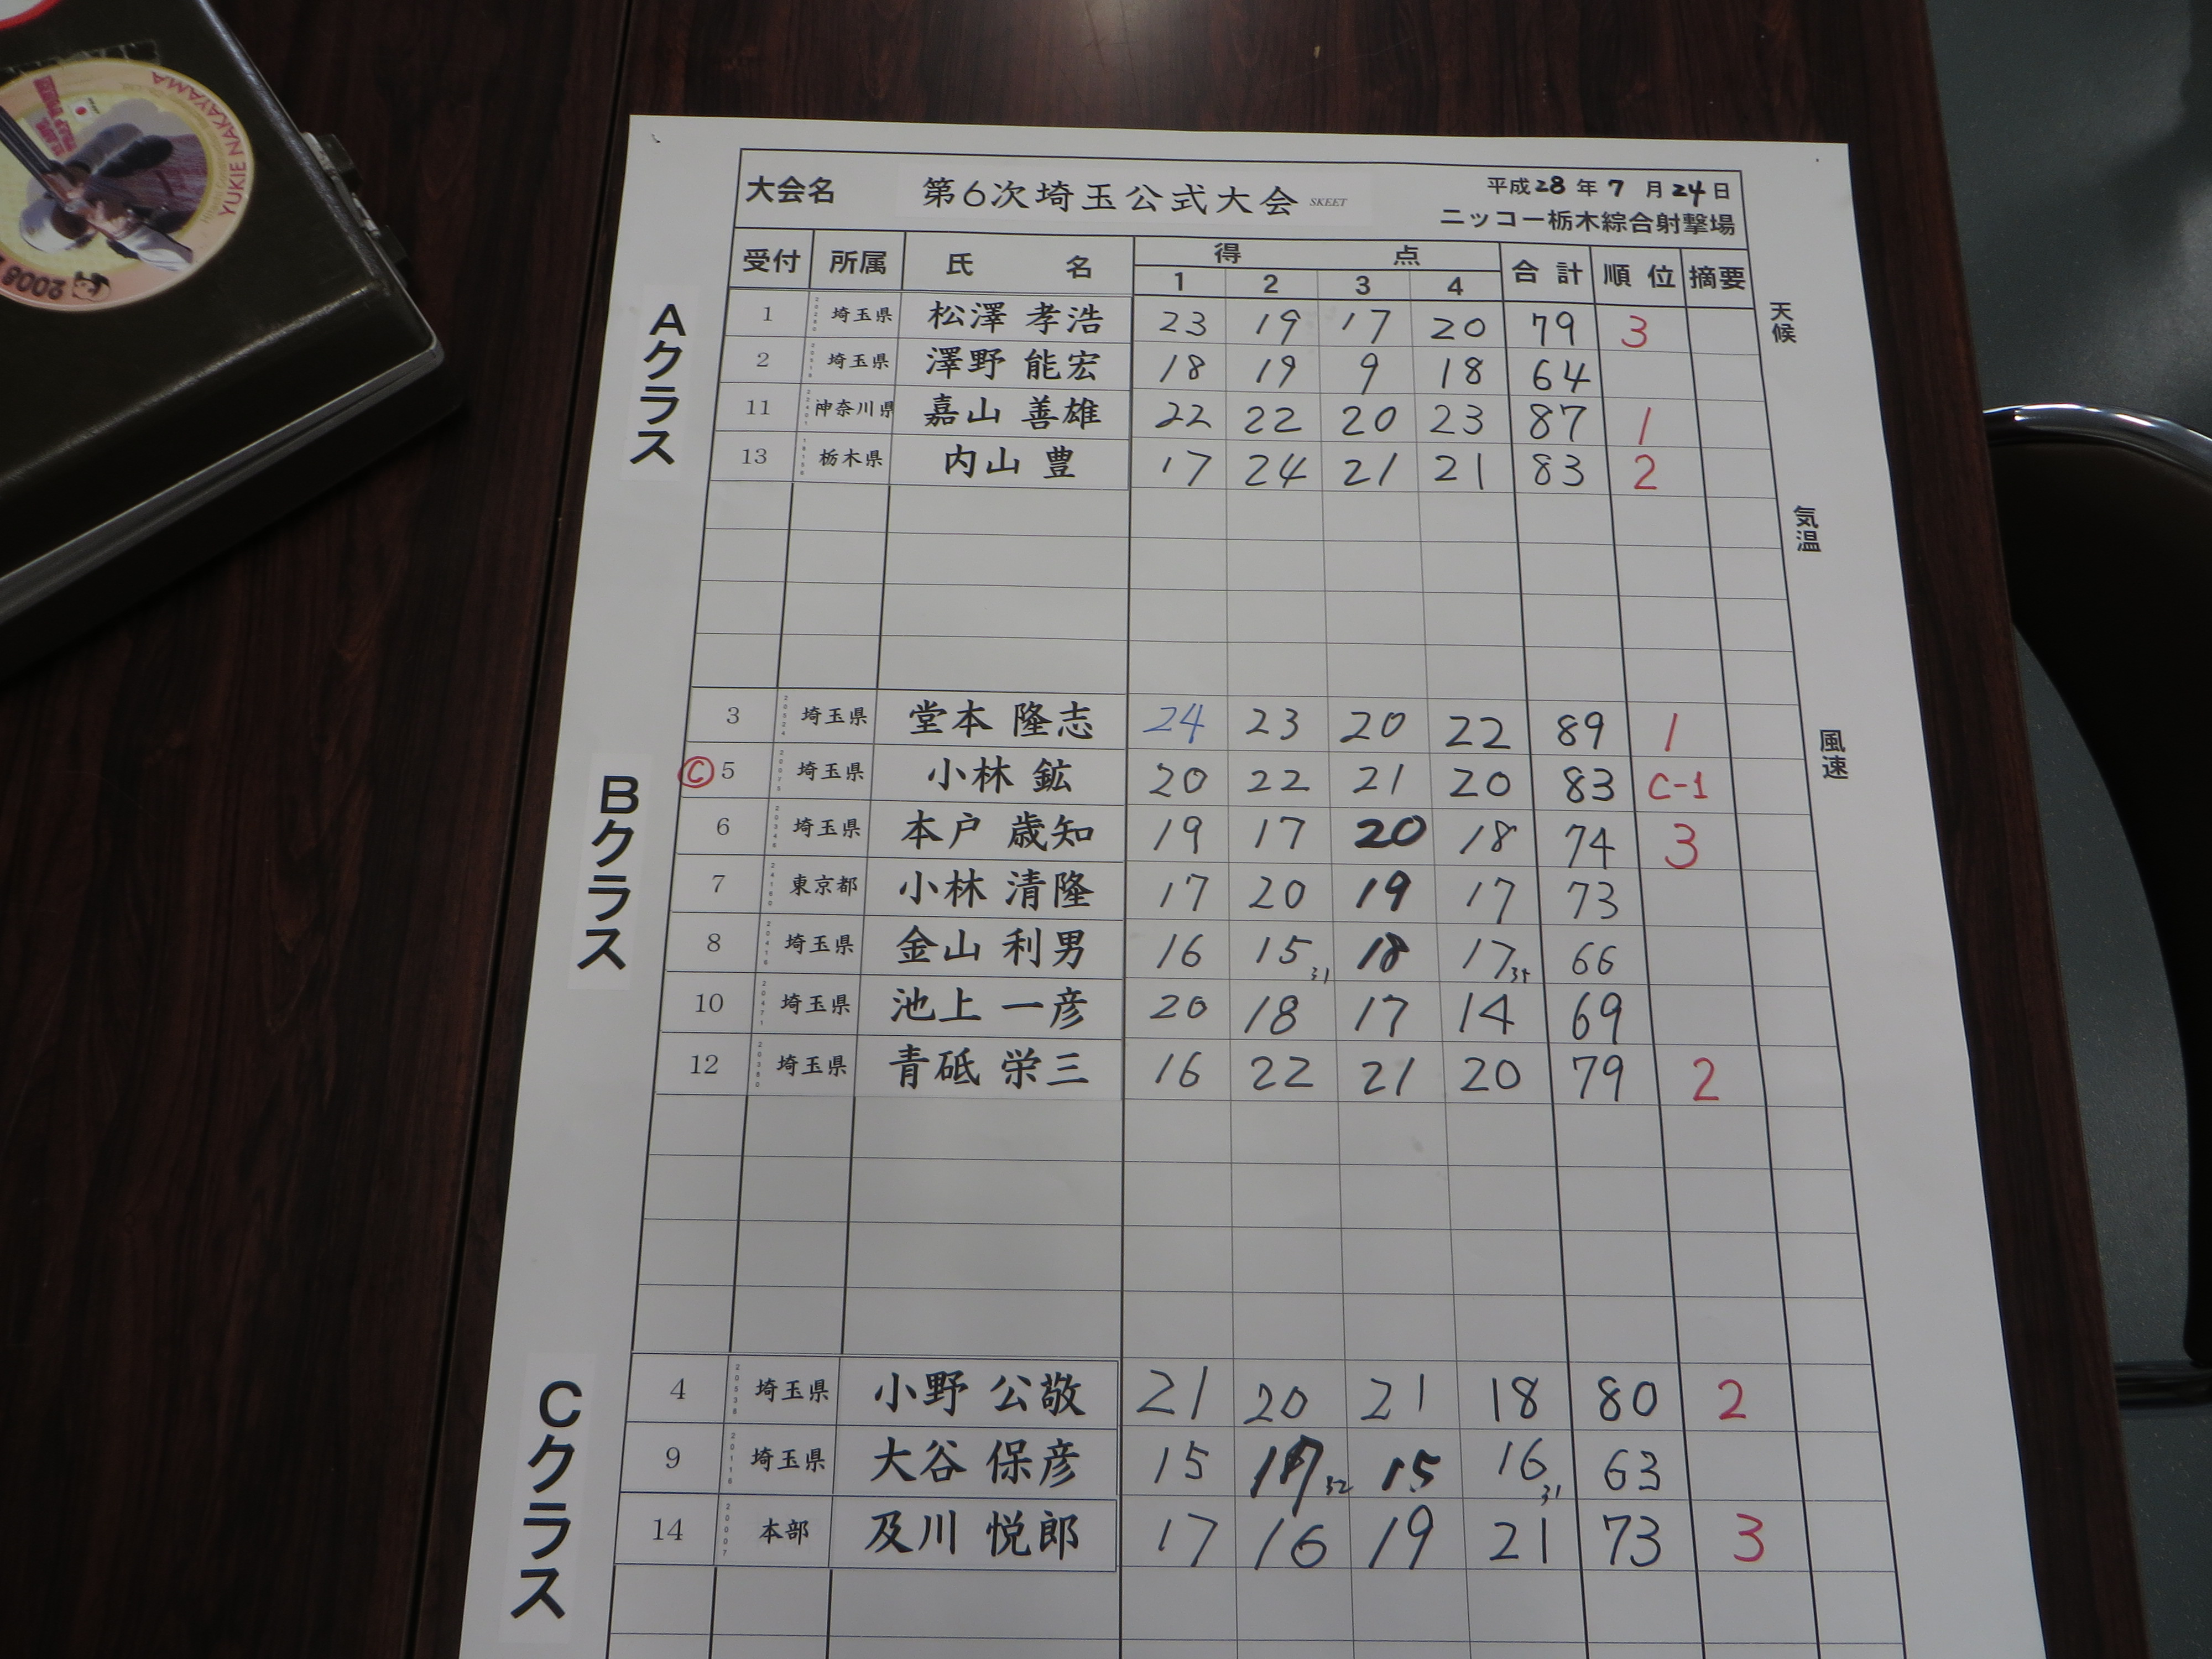 YUKIE NAKAYAMA
2008
大会名 第6次埼玉公式大会 SKEET 平成28年7月24日
ニッコー栃木綜合射撃場
受付 所属 氏名 得点 合計 順位 摘要
1 2 3 4
天候
気温
風速
Aクラス
1 埼玉県 松澤 孝浩 23 19 17 20 79 3
2 埼玉県 澤野 能宏 18 19 9 18 64
11 神奈川県 嘉山 善雄 22 22 20 23 87 1
13 栃木県 内山 豊 17 24 21 21 83 2
Bクラス
3 埼玉県 堂本 隆志 24 23 20 22 89 1
Ⓒ 5 埼玉県 小林 鉱 20 22 21 20 83 C-1
6 埼玉県 本戸 歳知 19 17 20 18 74 3
7 東京都 小林 清隆 17 20 19 17 73
8 埼玉県 金山 利男 16 15 31 18 17 35 66
10 埼玉県 池上 一彦 20 18 17 14 69
12 埼玉県 青砥 栄三 16 22 21 20 79 2
Cクラス
4 埼玉県 小野 公敬 21 20 21 18 80 2
9 埼玉県 大谷 保彦 15 17 32 15 16 31 63
14 本部 及川 悦郎 17 16 19 21 73 3